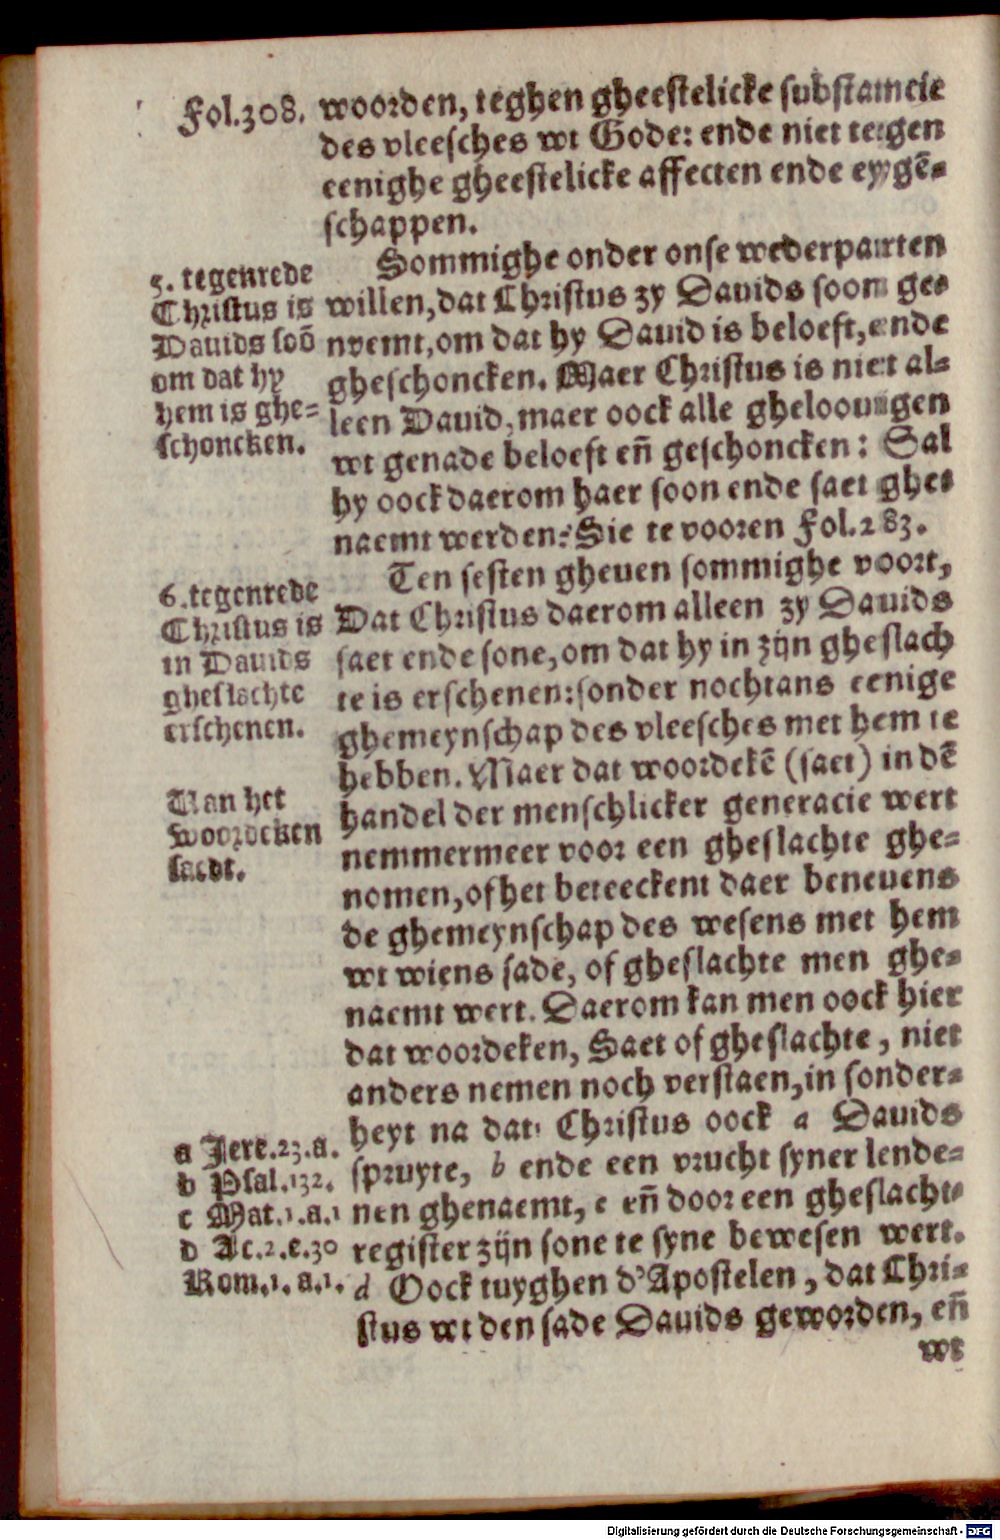 Fol.308.
woorden, teghen gheestelicke substamcie
des vleesches wt Gode: ende niet tegen
eenighe gheestelicke affecten ende eygē-
schappen.
5. tegenrede
Christus is
Dauids soō
om dat hy
hem is ghe-
schoncken.
Sommighe onder onse wederpaurten
willen, dat Christus zy Dauids soon ge-
nvemt, om dat hy Dauid is beloeft, ende
gheschoncken. Maer Christus is niet al-
leen Dauid, maer oock alle gheloouigen
wt genade beloeft eñ geschoncken: Sal
hy oock daerom haer soon ende saet ghe-
naemt werden? Sie te vooren Fol.283.
6. tegenrede
Christus is
in Dauids
gheslachte
erschenen.
Ten sesten gheuen sommighe voort,
Dat Christus daerom alleen zy Dauids
saet ende sone, om dat hy in zijn gheslach
te is erschenen: sonder nochtans eenige
ghemeynschap des vleesches met hem te
hebben. Maer dat woordekē (saet) in dē
Van het
woordeken
saedt.
handel der menschlicker generacie wert
nemmermeer voor een gheslachte ghe-
nomen, of het beteeckent daer beneuens
de ghemeynschap des wesens met hem
wt wiens sade, of gheslachte men ghe-
naemt wert. Daerom kan men oock hier
dat woordeken, Saet of gheslachte, niet
anders nemen noch verstaen, in sonder-
heyt na dat Christus oock a Dauids
spruyte, b ende een vrucht syner lende-
nen ghenaemt, c eñ door een gheslacht-
register zijn sone te syne bewesen wert.
d Oock tuyghen d'Apostelen, dat Chri-
stus wt den sade Dauids geworden, eñ
a Jere.23.a.
b Psal.132.
c Mat.1.a.1
d Ac.2.e.30
Rom.1.a.1.
wt
Digitalisierung gefördert durch die Deutsche Forschungsgemeinschaft - DFG